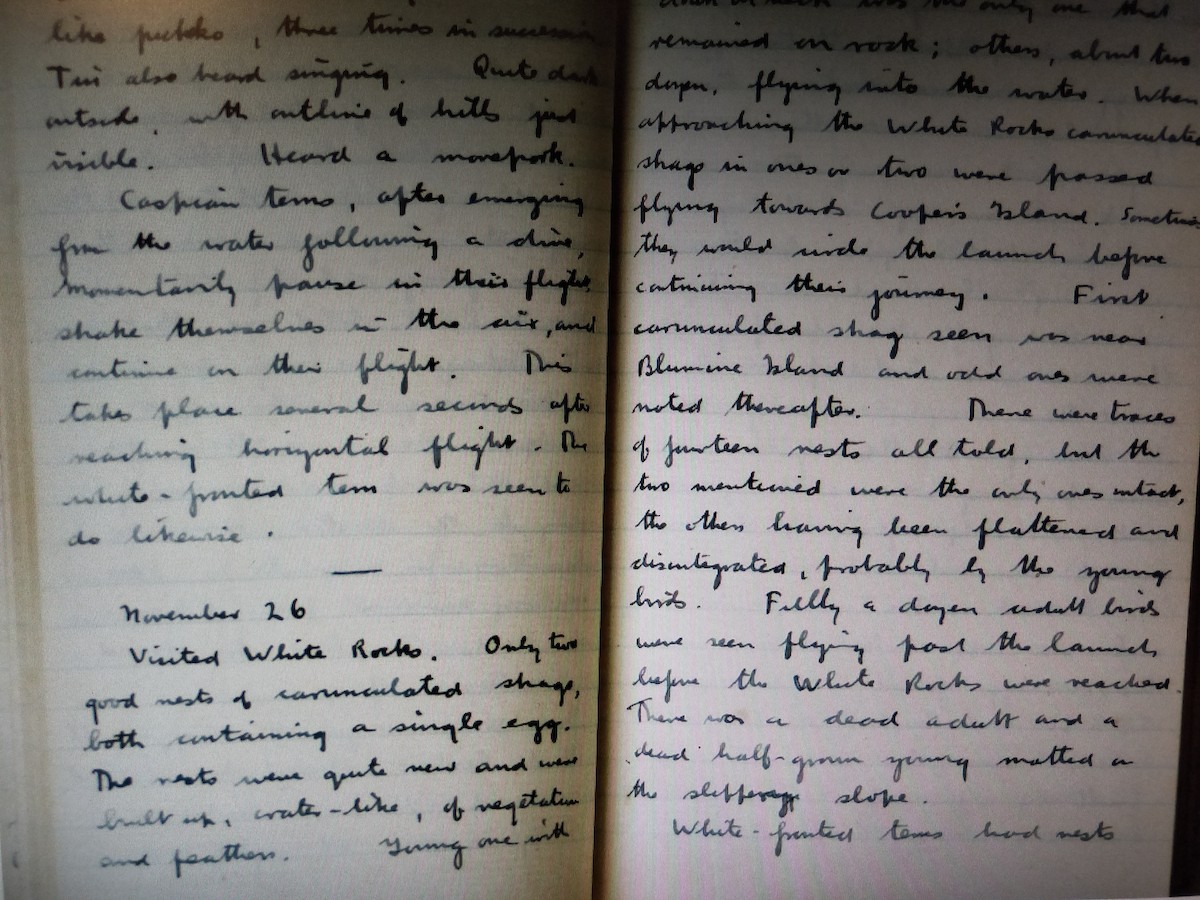 like pukeko, three times in succession
Tui also heard singing. Quite dark
outside, with outline of hills just
visible. Heard a morepork.
Caspian terns, after emerging
from the water following a dive,
momentarily pause in their flight,
shake themselves in the air, and
continue on their flight. This
takes place several seconds after
reaching horizontal flight. The
white-fronted tern was seen to
do likewise.
November 26
Visited White Rocks. Only two
good nests of carunculated shags,
both containing a single egg.
The nests were quite new and were
built up, crater-like, of vegetation
and feathers. Young one with
down on neck was the only one that
remained on rock; others, about two
dozen, flying into the water. When
approaching the White Rocks carunculated
shags in ones or two were passed
flying towards Cooper's Island. Sometimes
they would circle the launch before
continuing their journey. First
carunculated shag seen was near
Blumine Island and odd ones were
noted thereafter. There were traces
of fourteen nests all told, but the
two mentioned were the only ones intact,
the others having been flattened and
disintegrated, probably by the young
birds. Fully a dozen adult birds
were seen flying past the launch
before the White Rocks were reached.
There was a dead adult and a
dead half-grown young matted on
the slippery slope.
White-fronted terns had nests